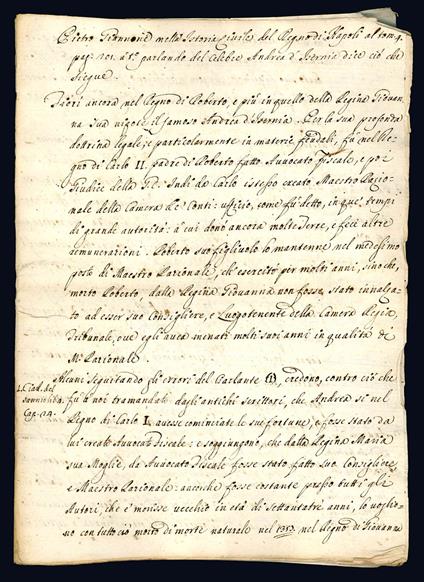 Pietro Giannone nella Istoria Civile del Regno di Napoli al tom. 3.
pag. 101. a t.° parlando del Celebre Andrea d'Isernia dice ciò che
siegue.
Fiorì ancora nel Regno di Roberto, e più in quello della Regina Giovan-
na sua nipote il famoso Andrea d'Isernia. Per la sua profonda
dottrina legale, e particolarmente in materie feudali, fù nel Re-
gno di Carlo II. padre di Roberto fatto Avvocato fiscale, e poi
Giudice della G.C. Indi da Carlo istesso creato Maestro Razio-
nale della Camera de' Conti: ufficio, come fù detto, in que' tempi
di grande autorità: a cui donò ancora molte Terre, e feci altre
remunerazioni. Roberto suo figliuolo lo mantenne nel medesimo
posto di Maestro Razionale, ch' esercitò per molti anni, sino che,
morto Roberto, dalla Regina Giovanna non fosse stato innalza-
to ad esser suo Consigliere, e Luogotenente della Camera Regia
Tribunale, ove egli avea menati molti suoi anni in qualità di
M.° Razionale.
Alcuni seguitando gli errori del Ciarlante (1), credono, contro ciò che
1. Ciarl. del
Sannio lib. 4.
Cap. 24.
fù a noi tramandato dagli antichi scrittori, che Andrea si nel
Regno di Carlo I. avesse cominciate le sue fortune, e fosse stato da
lui creato Avvocato fiscale: e soggiungono, che dalla Regina Maria
sua Moglie, da Avvocato Fiscale fosse stato fatto suo Consigliere,
e Maestro Razionale: ancorche fosse costante presso tutti gli
Autori, che e' morisse vecchio in età di settantatre anni, lo voglio-
no con tutto ciò morto di morte naturale nel 1353 nel Regno di Giovanna